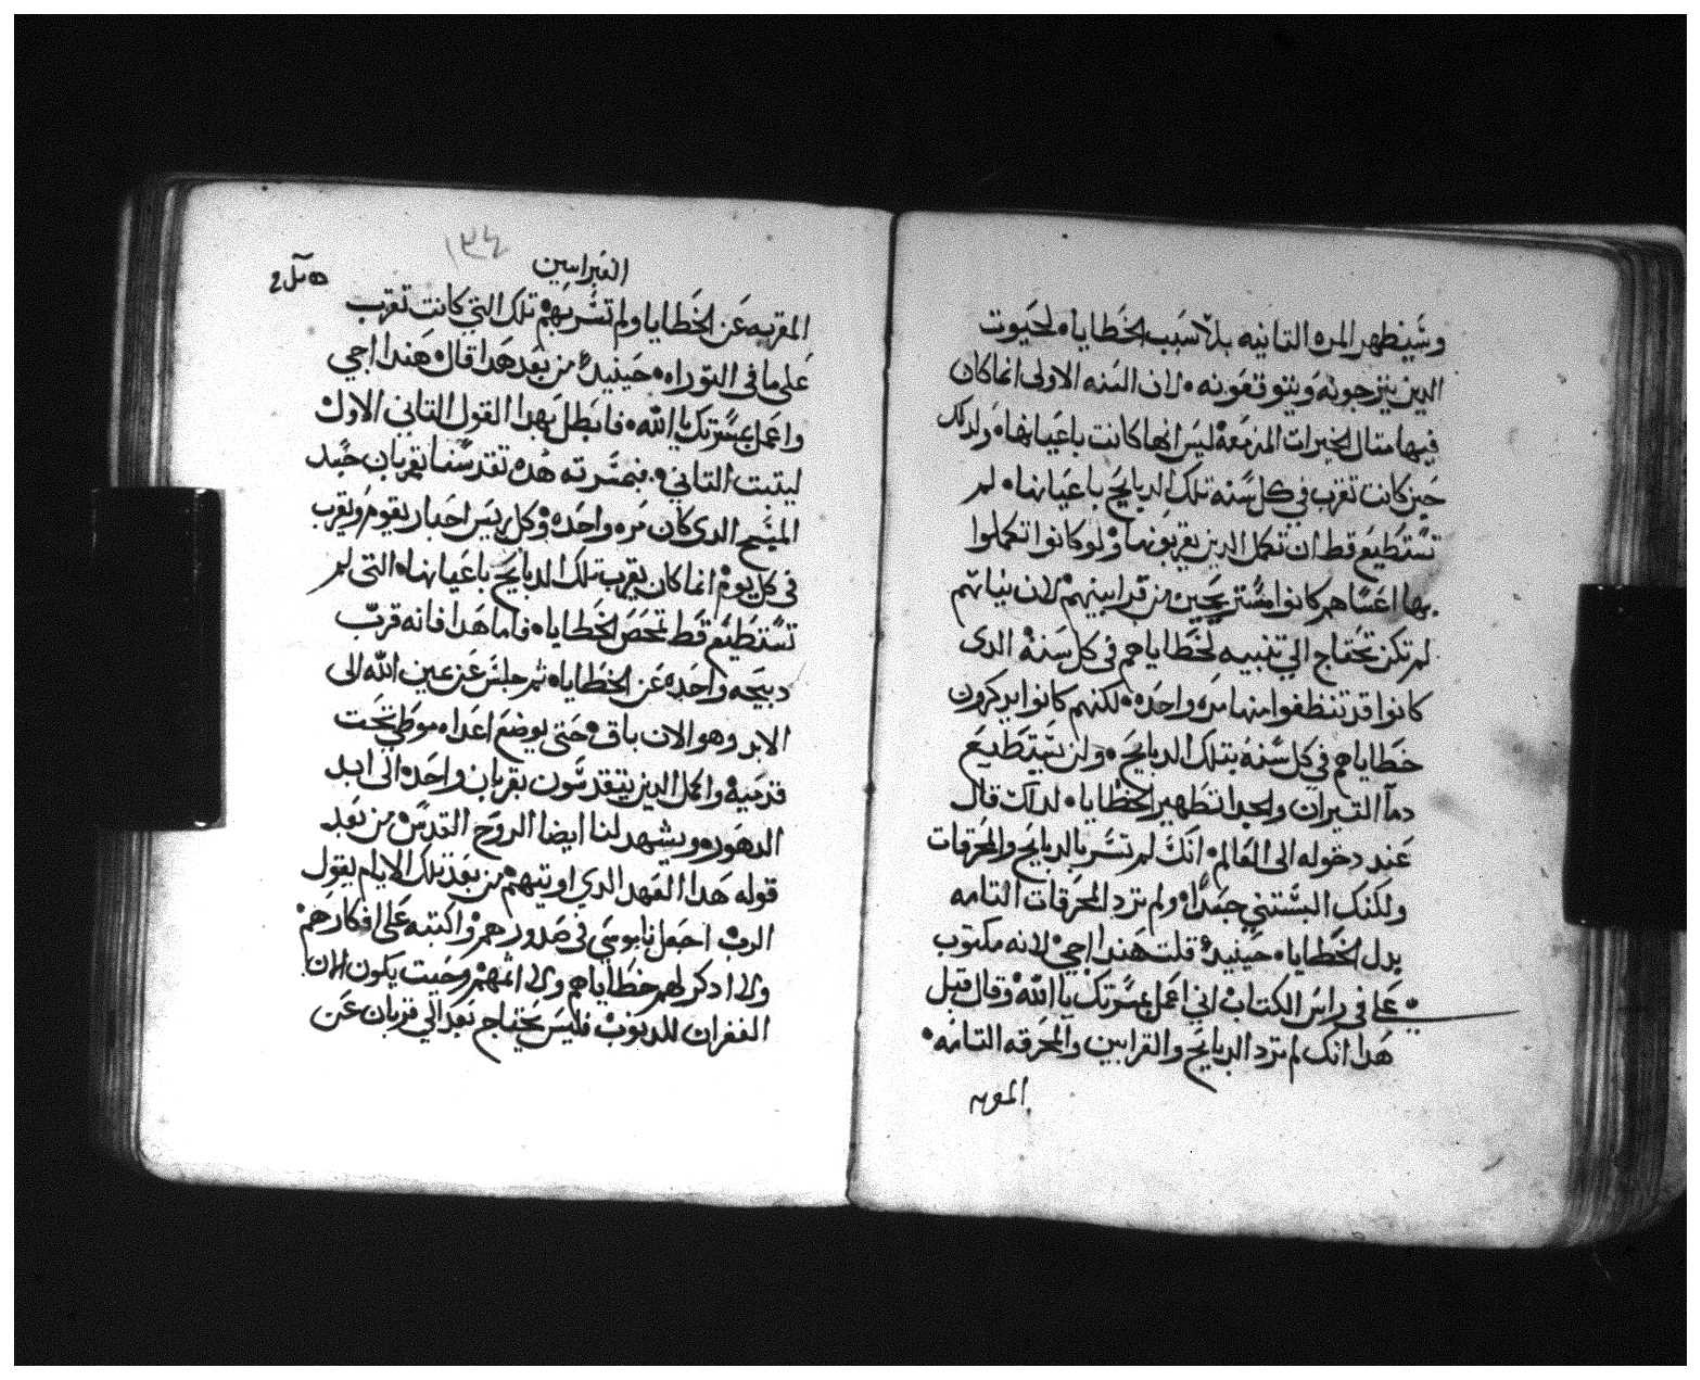 وسيظهر المره التانيه بلا سبب الخطايا، لحيوت
الدين يترجونه ويتوقعونه، لان السنه الاولى انما كان
فيها متال الخيرات المزمعه ليس انها كانت باعيانها، ولدلك
حين كانت تقرب في كل سنه تلك الدبايح باعيانها، لم
تستطيع قط ان تكمل الدين يقربونها ولو كانوا تكملوا
بها اعساهم كانوا مستريحين من قرابينهم لان نياتهم
لم تكن تحتاج الي تنبيه لخطاياهم في كل سنة الدى
كانوا قد تنظفوا منها مره واحده، لكنهم كانوا يدكرون
خطاياهم في كل سنة بتلك الدبايح، ولن يستطيع
دما التيران والجدا تطهير الخطايا، لدلك قال
عند دخوله الى العالم، انك لم تسر بالدبايح والمحرقات
ولكنك البستني جسدا، ولم ترد المحرقات التامه
بدل الخطايا، حينيد قلت هندا اجي لانه مكتوب
علي في راس الكتاب اني اعمل بمسرتك يا الله وقال قبل
هدا انك لم ترد الدبايح والقرابين والمحرقه التامه،
المقربه
١٣٤
العبرانيين
المقربه عن الخطايا ولم تسر بهم تلك التي كانت تقرب
على ما فى التوراه، حينيد من بعد هدا قال هندا اجي
واعمل بمسرتك يا الله، فابطل بهدا القول التاني الاول
ليتبت التاني، فبمسرته هده تقدسنا بقربان جسد
المسيح الدى كان مره واحده وكل رييس احبار يقوم ويقرب
فى كل يوم انما كان يقرب تلك الدبايح باعيانها، التى لم
تستطيع قط تمحص الخطايا، فاما هدا فانه قرب
دبيحه واحده عن الخطايا، تم جلس عن عين الله الى
الابد وهو الان باق، حتى يوضع اعداه موطي تحت
قدميه واكمل الدين يتقدسون بقربان واحده الى ابد
الدهور، ويشهد لنا ايضا الروح القدس من بعد
قوله هدا العهد الدي اوتيهم من بعد تلك الايام يقول
الرب اجعل ناموسي فى صدورهم واكتبه على افكارهم
ولا ادكر لهم خطاياهم ولا اتمهم وحيت يكون الان
الغفران للدنوب فليس يحتاج بعد الي قربان عن